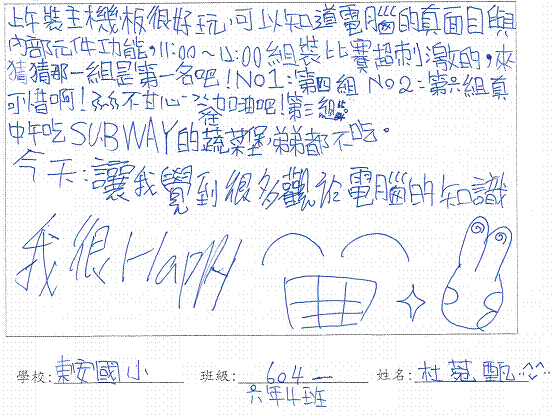 上午裝主機板很好玩,可以知道電腦的真面目與
內部元件功能,11:00~12:00組裝比賽超刺激的,來
猜猜那一組是第一名吧!NO1:第四組 NO2:第六組真
可惜啊!亦不甘心加油吧!第三組
中午吃SUBWAY的蔬菜堡,弟弟都不吃。
今天:讓我覺到很多觀於電腦的知識
我很Happy
學校:東安國小 班級:604 姓名:杜甄
六年4班